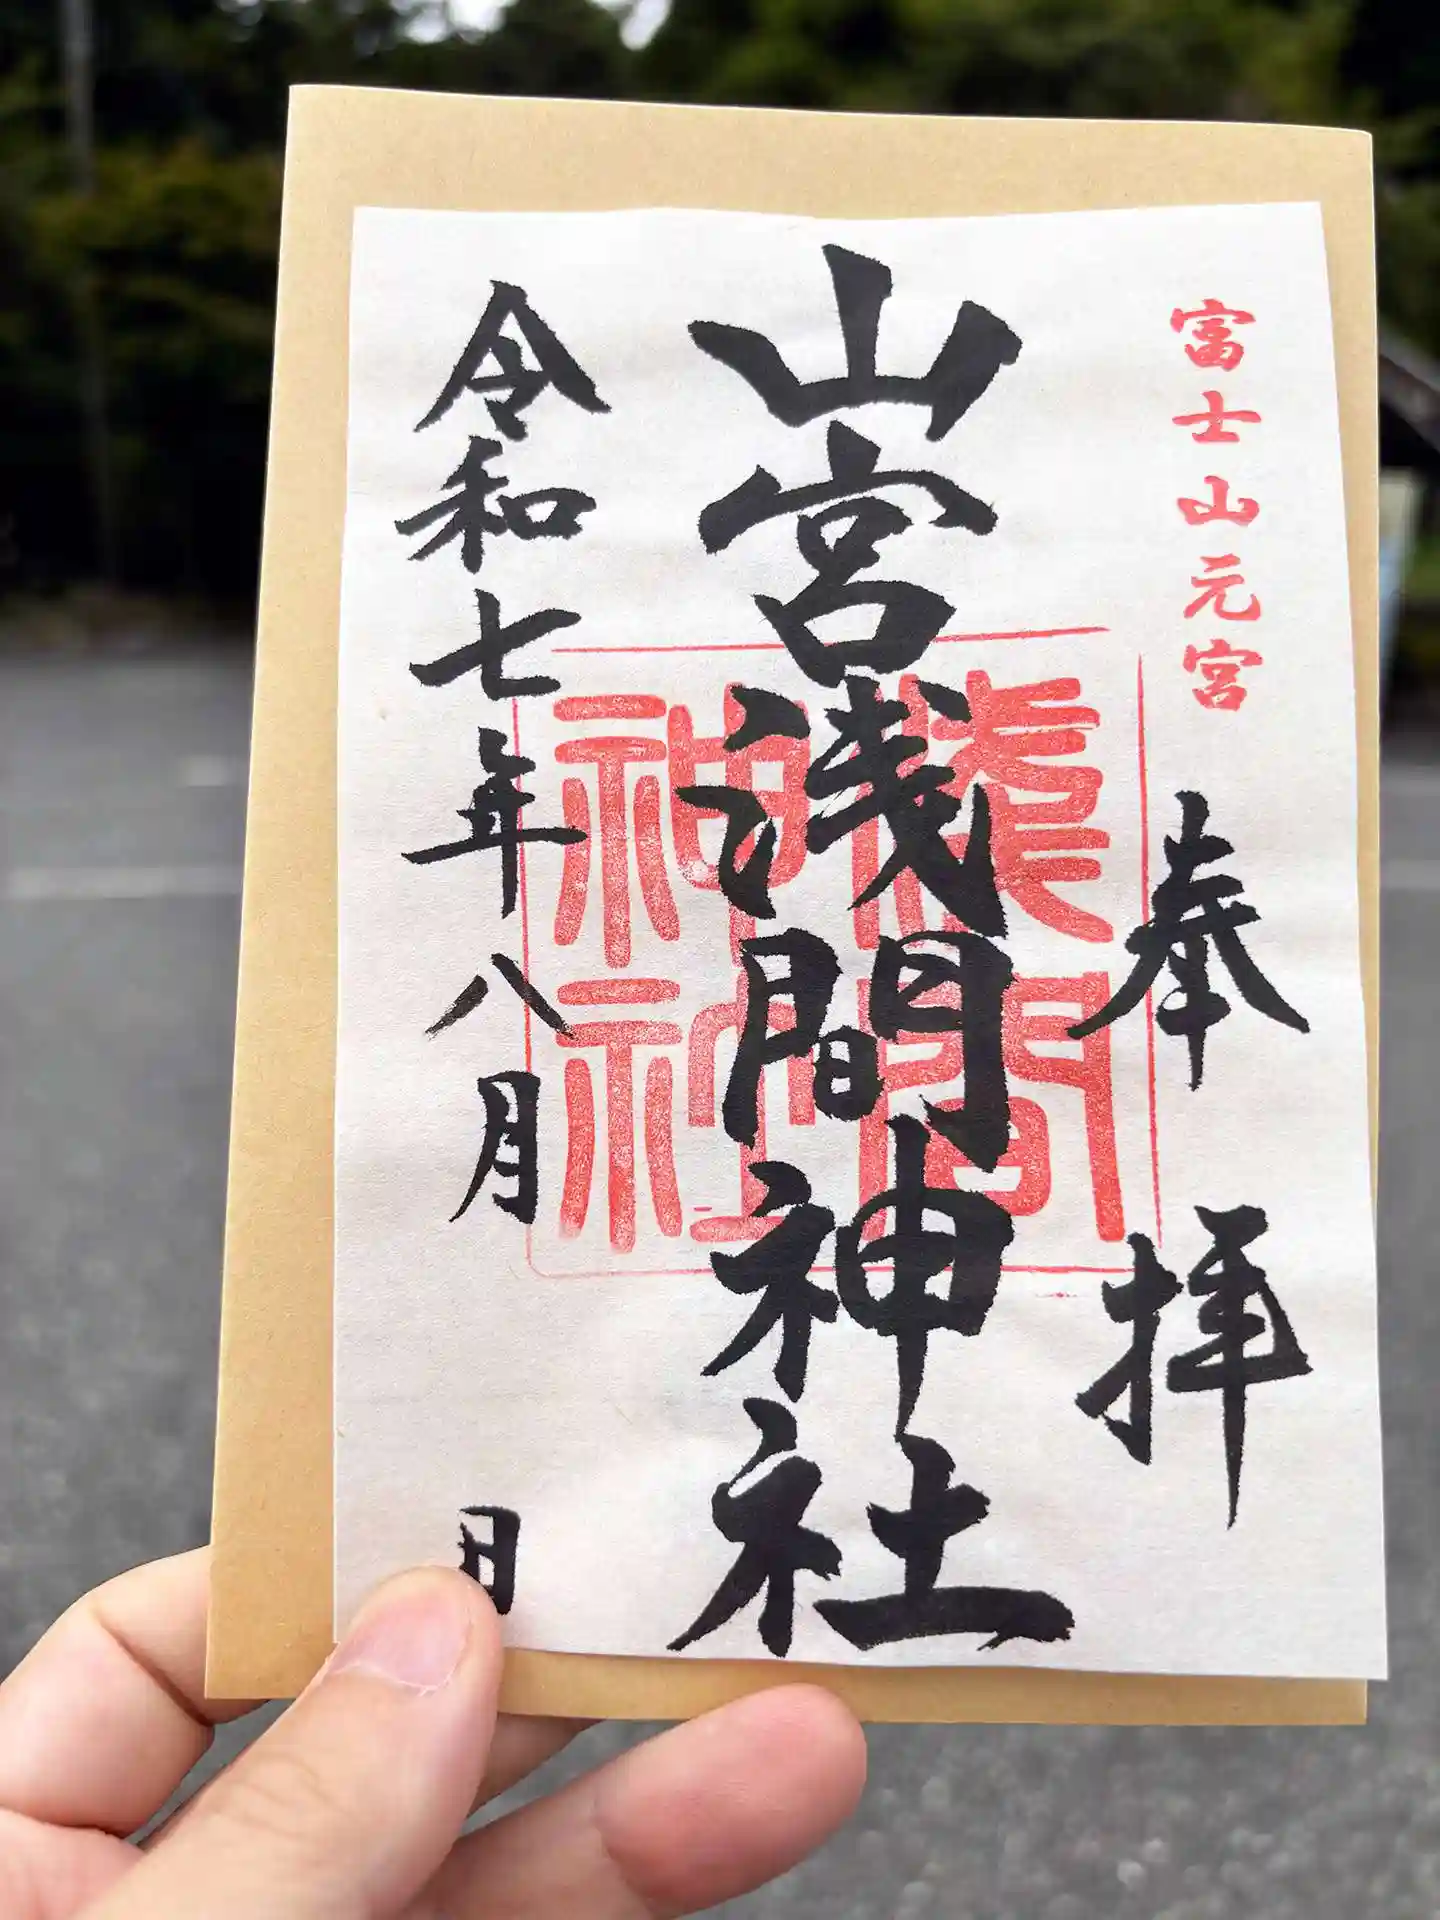 富士山元宮
奉拝
山宮浅間神社
浅間神社
令和七年八月 日